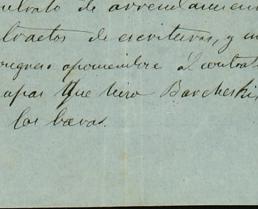 ntrato de arrendamien
tractos de escrituras, y un
ingreso oponiendose al contrat
apas que hizo Barcheski
los bavas.